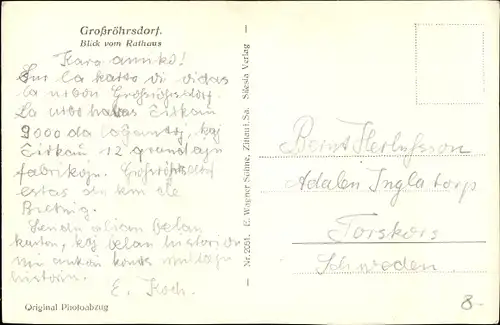 Großröhrsdorf.
Blick vom Rathaus
Kara amiko!
Sur la karto vi vidas
la urbon Großröhrsdorf.
La urbo havas ĉirkaŭ
9000 da loĝantoj, kaj
ĉirkaŭ 12 grandajn
fabrikojn. Großröhrsdorf
estas km de
Bretnig.
Sendu alian belan
karton, kaj belan
mi ankaŭ
E. Koch.
Original Photoabzug
Nr. 2051. E. Wagner Söhne, Zittau i. Sa. Silesia Verlag
Bernt
Adalen Inglatorp
Torskors
Schweden.
8-